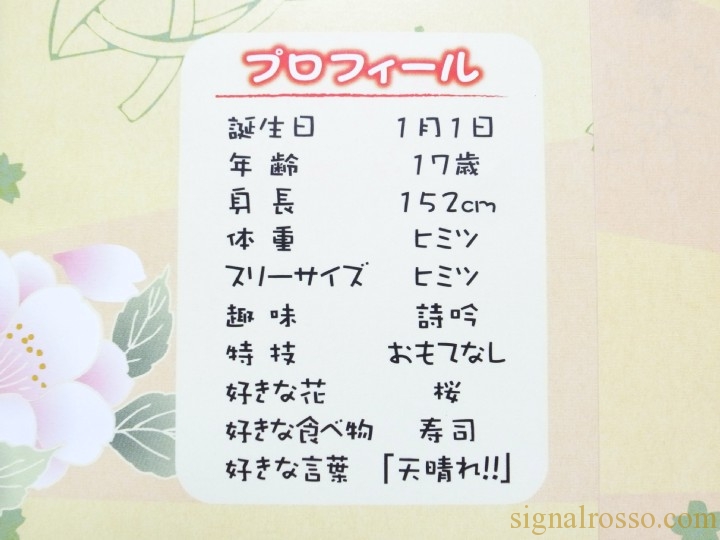 プロフィール
誕生日 1月1日
年齢 17歳
身長 152cm
体重 ヒミツ
スリーサイズ ヒミツ
趣味 詩吟
特技 おもてなし
好きな花 桜
好きな食べ物 寿司
好きな言葉 「天晴れ!!」
signalrosso.com